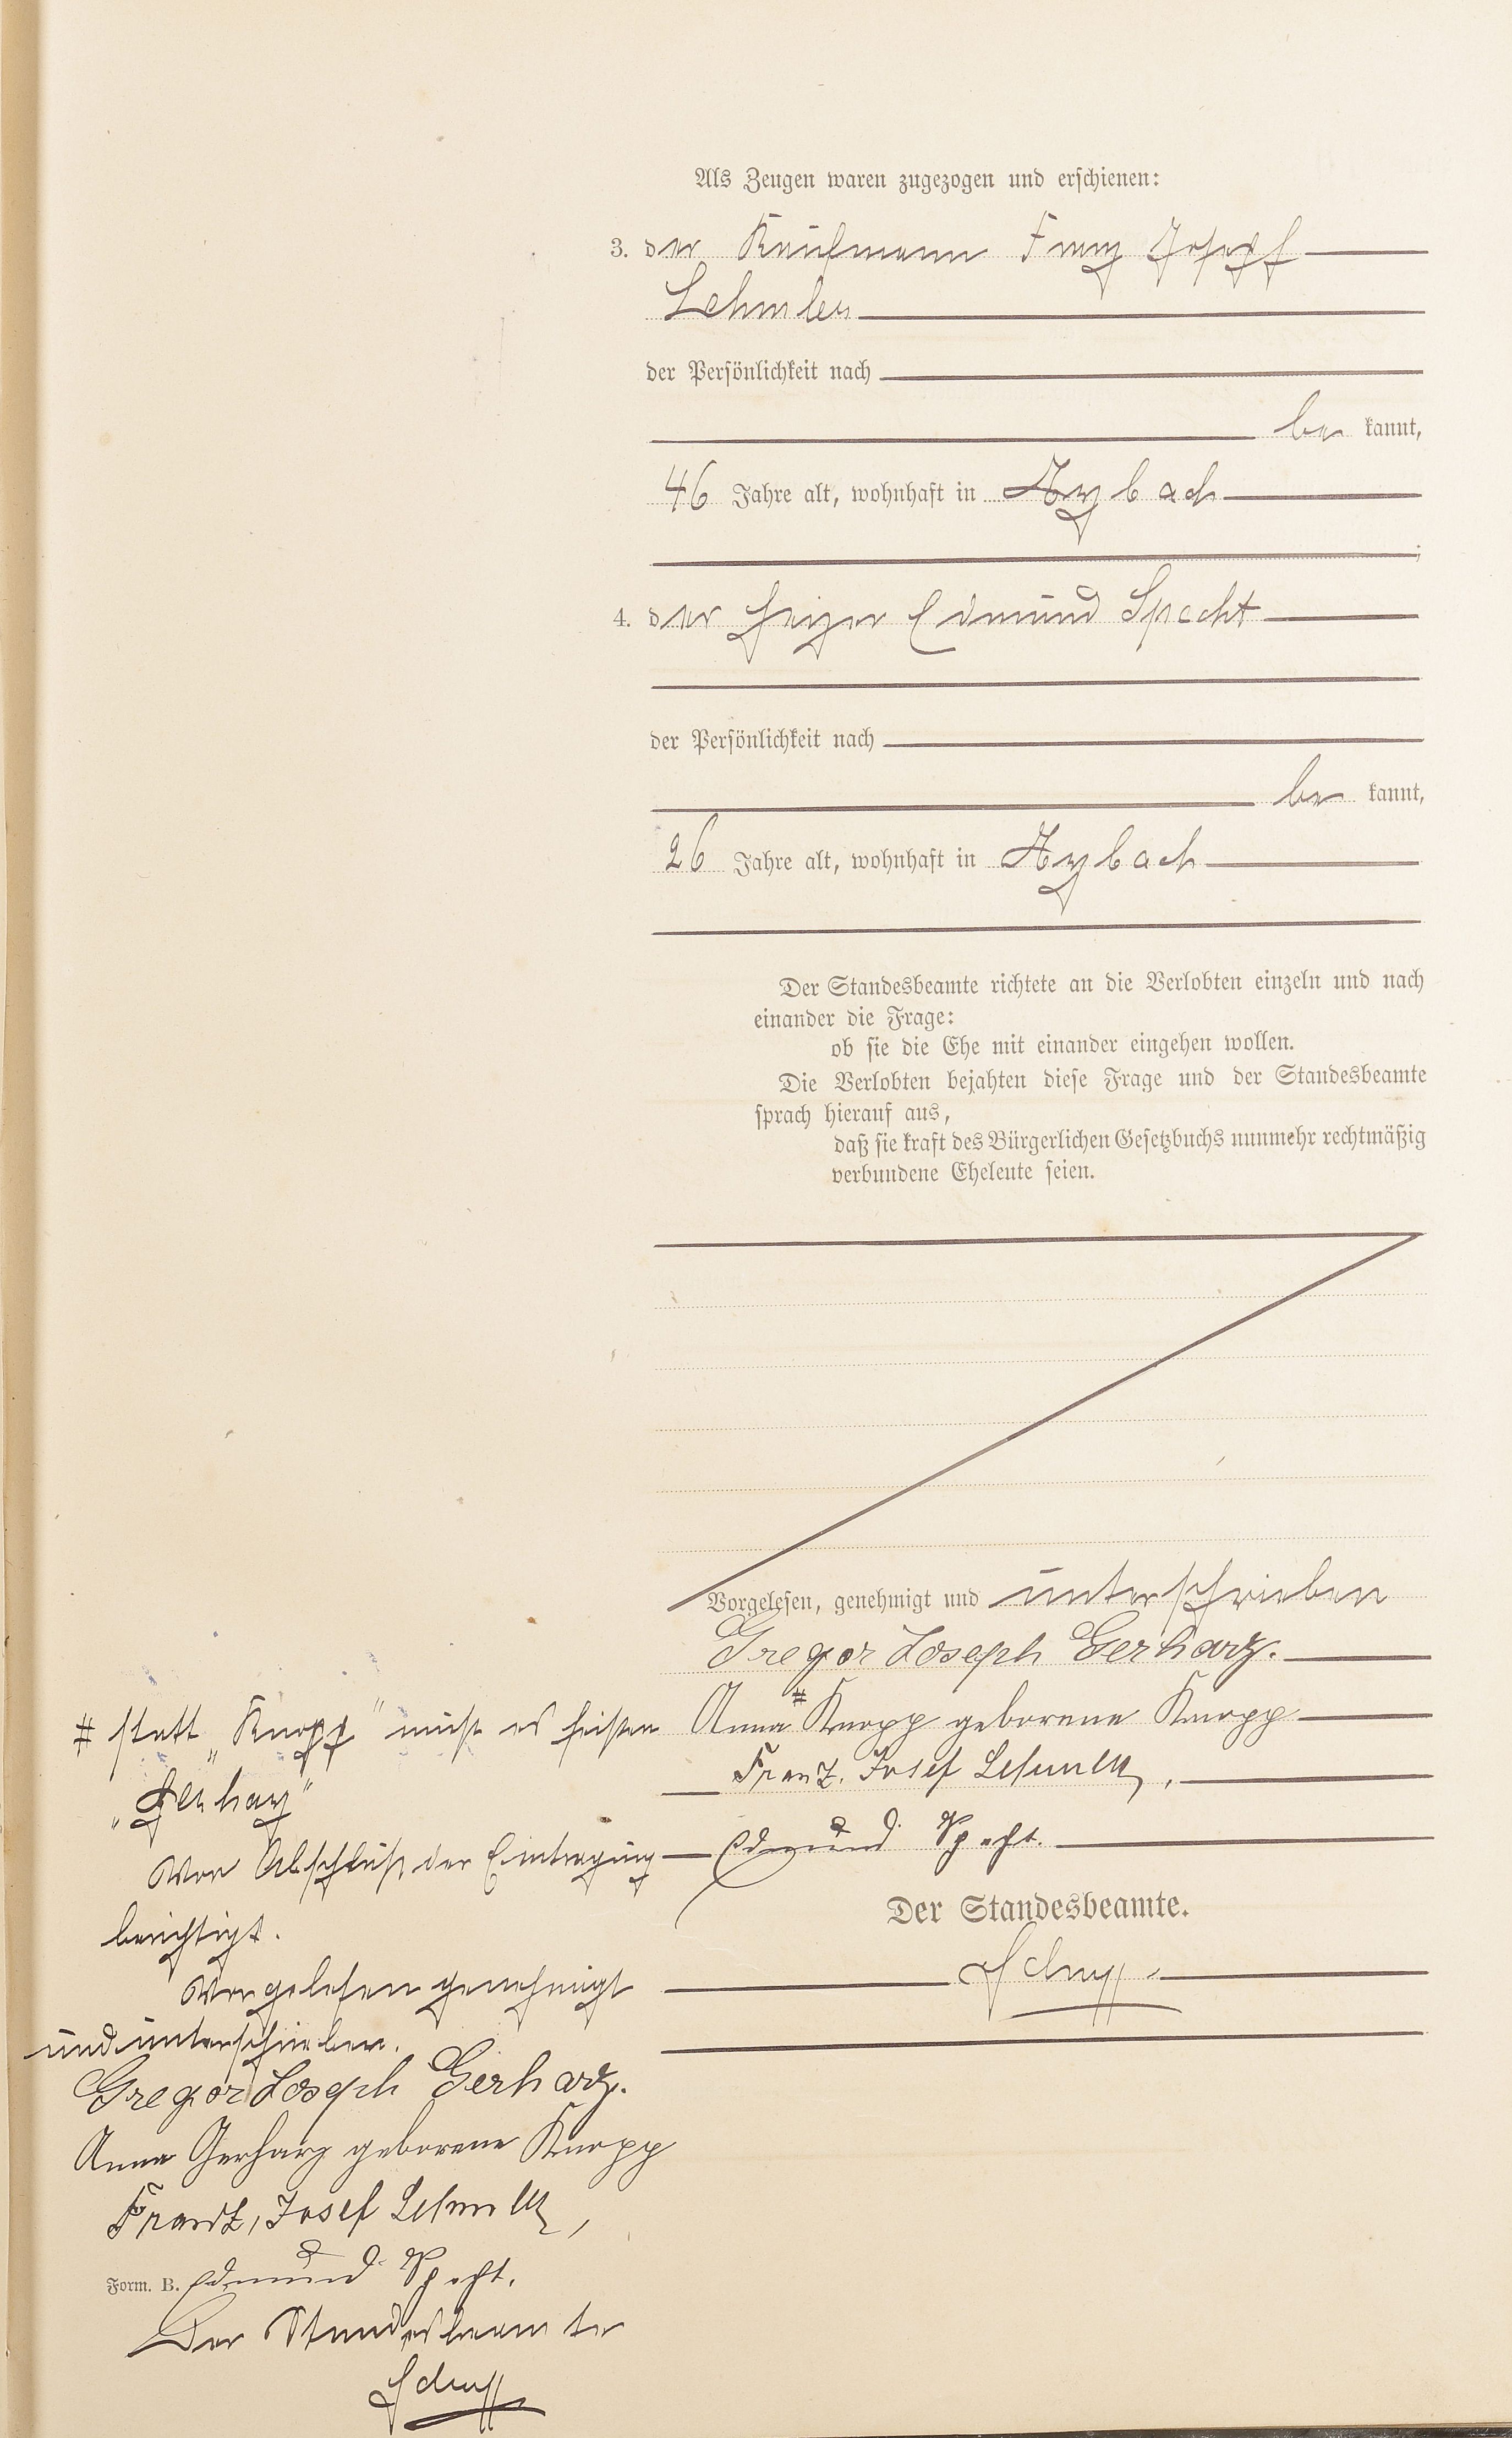 Als Zeugen waren zugezogen und erschienen:
3. der Kaufmann Franz Josef
Lehmler
der Persönlichkeit nach
be kannt,
46 Jahre alt, wohnhaft in Arzbach
;
4. der Heizer Edmund Specht
der Persönlichkeit nach
be kannt,
26 Jahre alt, wohnhaft in Arzbach
Der Standesbeamte richtete an die Verlobten einzeln und nach
einander die Frage:
ob sie die Ehe mit einander eingehen wollen.
Die Verlobten bejahten diese Frage und der Standesbeamte
sprach hierauf aus,
daß sie kraft des Bürgerlichen Gesetzbuchs nunmehr rechtmäßig
verbundene Eheleute seien.
Vorgelesen, genehmigt und unterschrieben
Gregor Joseph Gerharz.
Anna # Knopp geborene Knopp
Franz, Josef Lehmler,
Edmund Specht.
Der Standesbeamte.
# statt „Knopp" muß es heißen
„Gerharz"
Vor Abschluß der Eintragung
berichtigt.
Vorgelesen genehmigt
und unterschrieben.
Gregor Joseph Gerharz.
Anna Gerharz geborene Knopp
Franz, Josef Lehmler,
Form. B. Edmund Specht.
Der Standesbeamte